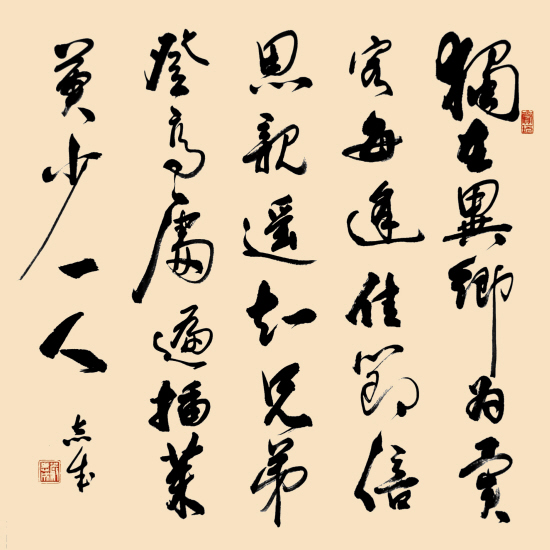 獨在異鄉為異
客每逢佳節倍
思親遥知兄弟
登高處遍插茱
萸少一人
志成